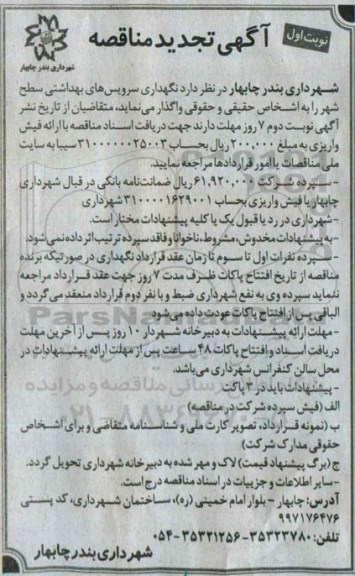 نوبت اول
آگهی تجدید مناقصه
شهرداری بندر چابهار
شهرداری بندر چابهار در نظر دارد نگهداری سرویس‌های بهداشتی سطح
شهر را به اشخاص حقیقی و حقوقی واگذار می‌نماید، متقاضیان از تاریخ نشر
آگهی نوبت دوم ۷ روز مهلت دارند جهت دریافت اسناد مناقصه با ارائه فیش
واریزی به مبلغ ۲۰۰,۰۰۰ ریال بحساب ۳۱۰۰۰۰۰۰۲۵۰۰۳ سیبا به سایت
ملی مناقصات یا امور قراردادها مراجعه نمایید.
- سپرده شرکت ۶۱,۹۲۰,۰۰۰ ریال ضمانت‌نامه بانکی در قبال شهرداری
چابهار یا فیش واریزی بحساب ۳۱۰۰۰۰۱۶۲۹۰۰۱ شهرداری
-شهرداری در رد یا قبول یک یا کلیه پیشنهادات مختار است.
-به پیشنهادات مخدوش، مشروط، ناخوانا و فاقد سپرده ترتیب اثر داده نمی‌شود.
- سپرده نفرات اول تا سوم تا زمان عقد قرارداد نگهداری در صورتیکه برنده
مناقصه از تاریخ افتتاح پاکات ظرف مدت ۷ روز جهت عقد قرارداد مراجعه
ننماید سپرده وی به نفع شهرداری ضبط و با نفر دوم قرارداد منعقد می‌گردد و
الباقی پس از افتتاح پاکات عودت داده می‌شود.
-مهلت ارائه پیشنهادات به دبیرخانه شهردار ۱۰ روز پس از آخرین مهلت
دریافت اسناد و افتتاح پاکات ۴۸ ساعت پس از مهلت ارائه پیشنهادات در
محل سالن کنفرانس شهرداری می‌باشد.
- پیشنهادات باید در ۳ پاکت
الف (فیش سپرده شرکت در مناقصه)
ب (نمونه قرارداد، تصویر کارت ملی و شناسنامه متقاضی و برای اشخاص
حقوقی مدارک شرکت)
ج (برگ پیشنهاد قیمت) لاک و مهر شده به دبیرخانه شهرداری تحویل گردد.
-سایر اطلاعات و جزییات در اسناد مناقصه درج است.
آدرس: چابهار - بلوار امام خمینی (ره)، ساختمان شهرداری، کد پستی
۹۹۷۱۷۶۴۷۶
تلفن: ۳۵۳۲۳۷۸۰-۳۵۳۲۱۲۵۶-۰۵۴
شهرداری بندر چابهار